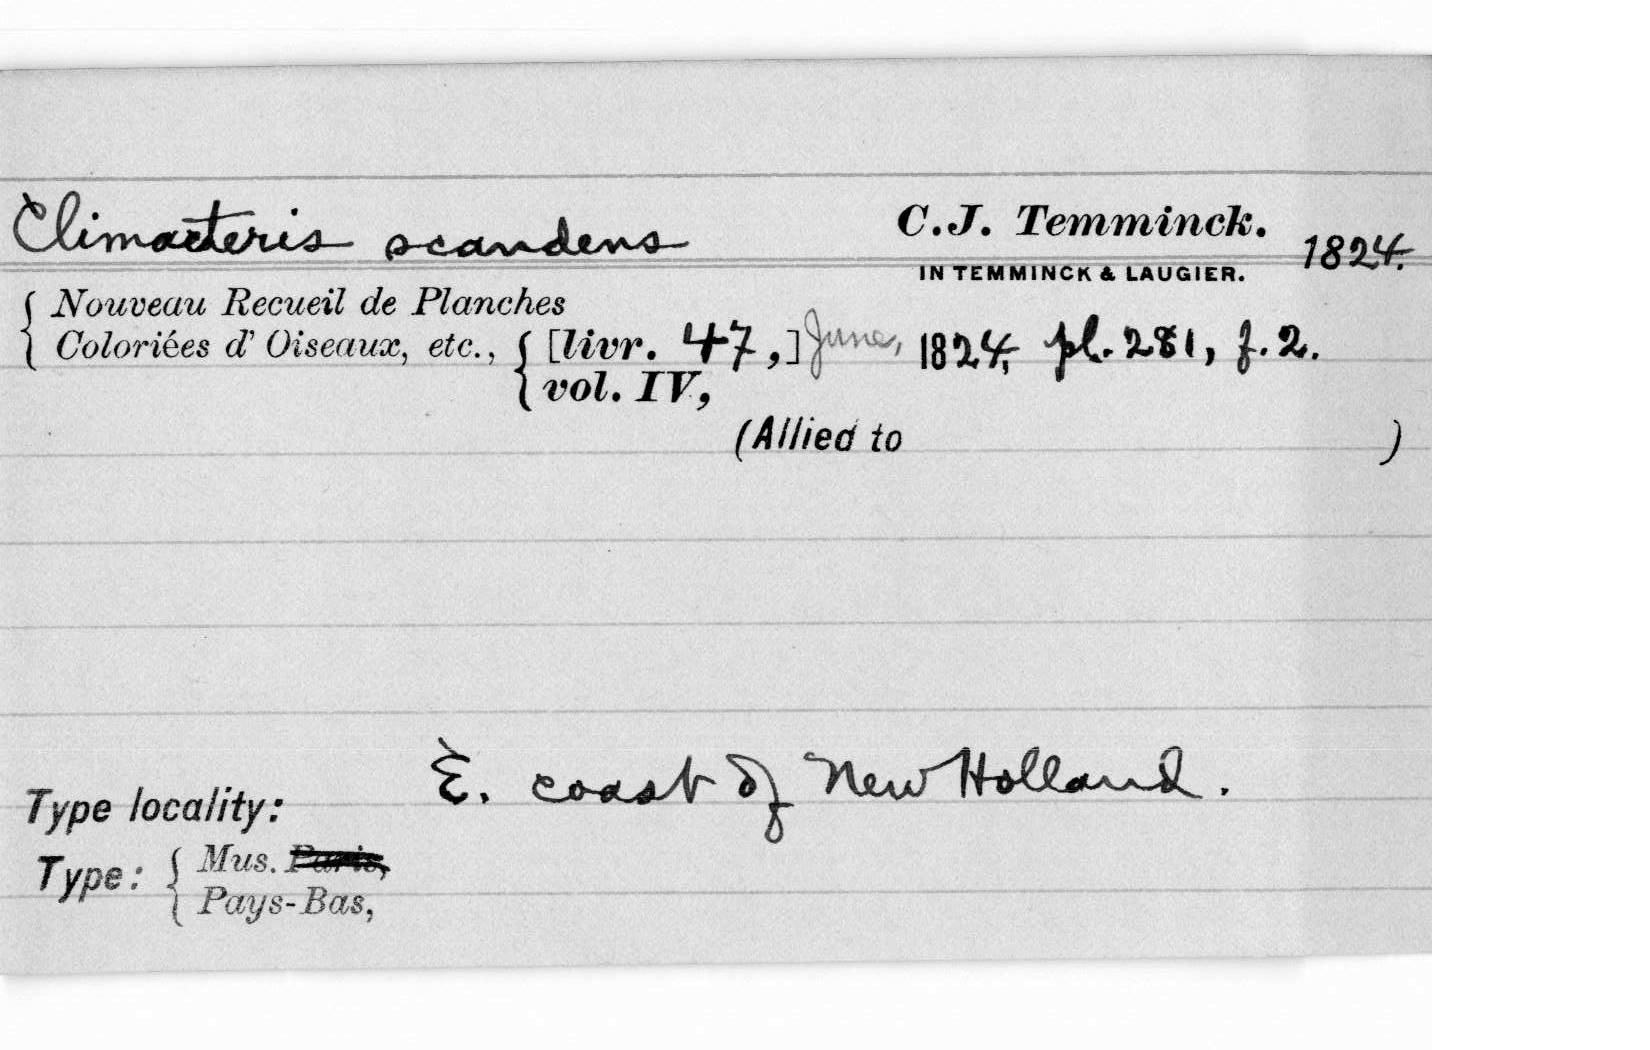 Climacteris scandens C.J. Temminck. 1824.
IN TEMMINCK & LAUGIER.
Nouveau Recueil de Planches
Coloriées d' Oiseaux, etc., [livr. 47,] June, 1824, pl. 281, f. 2.
vol. IV,
(Allied to )
Type locality: E. coast of New Holland.
Type: Mus. Paris,
Pays-Bas,